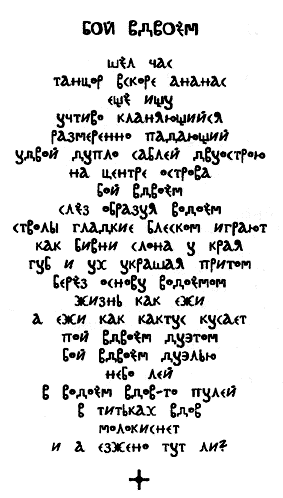 БОЙ ВДВОЁМ
ШЁЛ ЧАС
ТАНЦОР ВСКОРЕ АНАНАС
ЕЩЁ ИЩУ
УЧТИВО КЛАНЯЮЩИЙСЯ
РАЗМЕРЕННО ПАДАЮЩИЙ
УДВОЙ ДУПЛО САБЛЕЙ ДВУОСТРОЮ
НА ЦЕНТРЕ ОСТРОВА
БОЙ ВДВОЁМ
СЛЁЗ ОБРАЗУЯ ВОДОЁМ
СТВОЛЫ ГЛАДКИЕ БЛЕСКОМ ИГРАЮТ
КАК БИВНИ СЛОНА У КРАЯ
ГУБ И УХ УКРАШАЯ ПРИТОМ
БЕРЁЗ ОСНОВУ ВОДОЁМОМ
ЖИЗНЬ КАК ЕЖИ
А ЕЖИ КАК КАКТУС КУСАЕТ
ПОЙ ВДВОЁМ ДУЭТОМ
БОЙ ВДВОЁМ ДУЭЛЬЮ
НЕБО ЛЕЙ
В ВОДОЁМ ВДОВ-ТО ПУЛЕЙ
В ТИТЬКАХ ВДОВ
МОЛОКИСНЕТ
И А ЕЗЖЕНО ТУТ ЛИ?